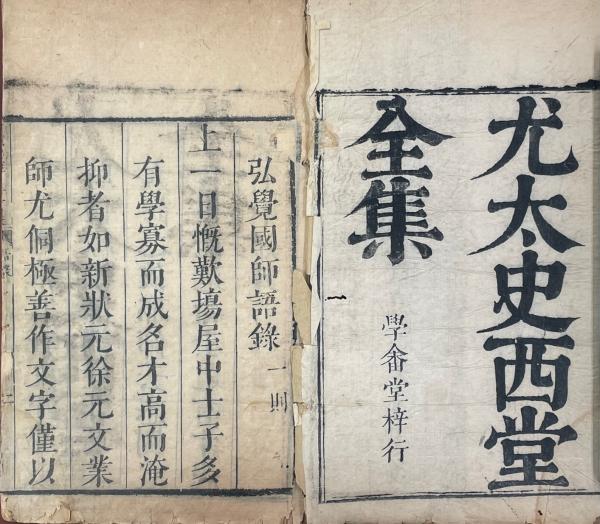 尤太史西堂
全集
學畬堂梓行
弘覺國師語錄 一則
上一日慨歎塲屋中士子多
有學寡而成名才高而淹
抑者如新狀元徐元文業
師尤侗極善作文字僅以